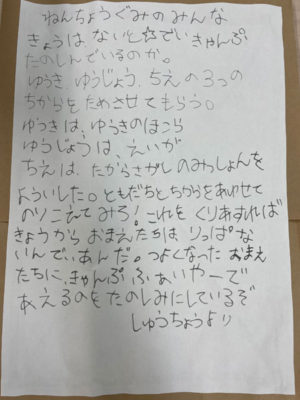 ねんちょうぐみのみんな
きょうは、ないとでいきゃんぷ
たのしんでいるのか。
ゆうき、ゆうじょう、ちえの3つの
ちからをためさせてもらう。
ゆうきは、ゆうきのほこら
ゆうじょうは、えいが
ちえは、たからさがしのみっしょんを
よういした。ともだちとちからをあわせて
のりこえてみろ!これをくりあすれば
きょうからおまえたちは、りっぱな
いんでぃあんだ。つよくなったおまえ
たちに、きゃんぷふぁいやーで
あえるのをたのしみにしているぞ
しゅうちょうより